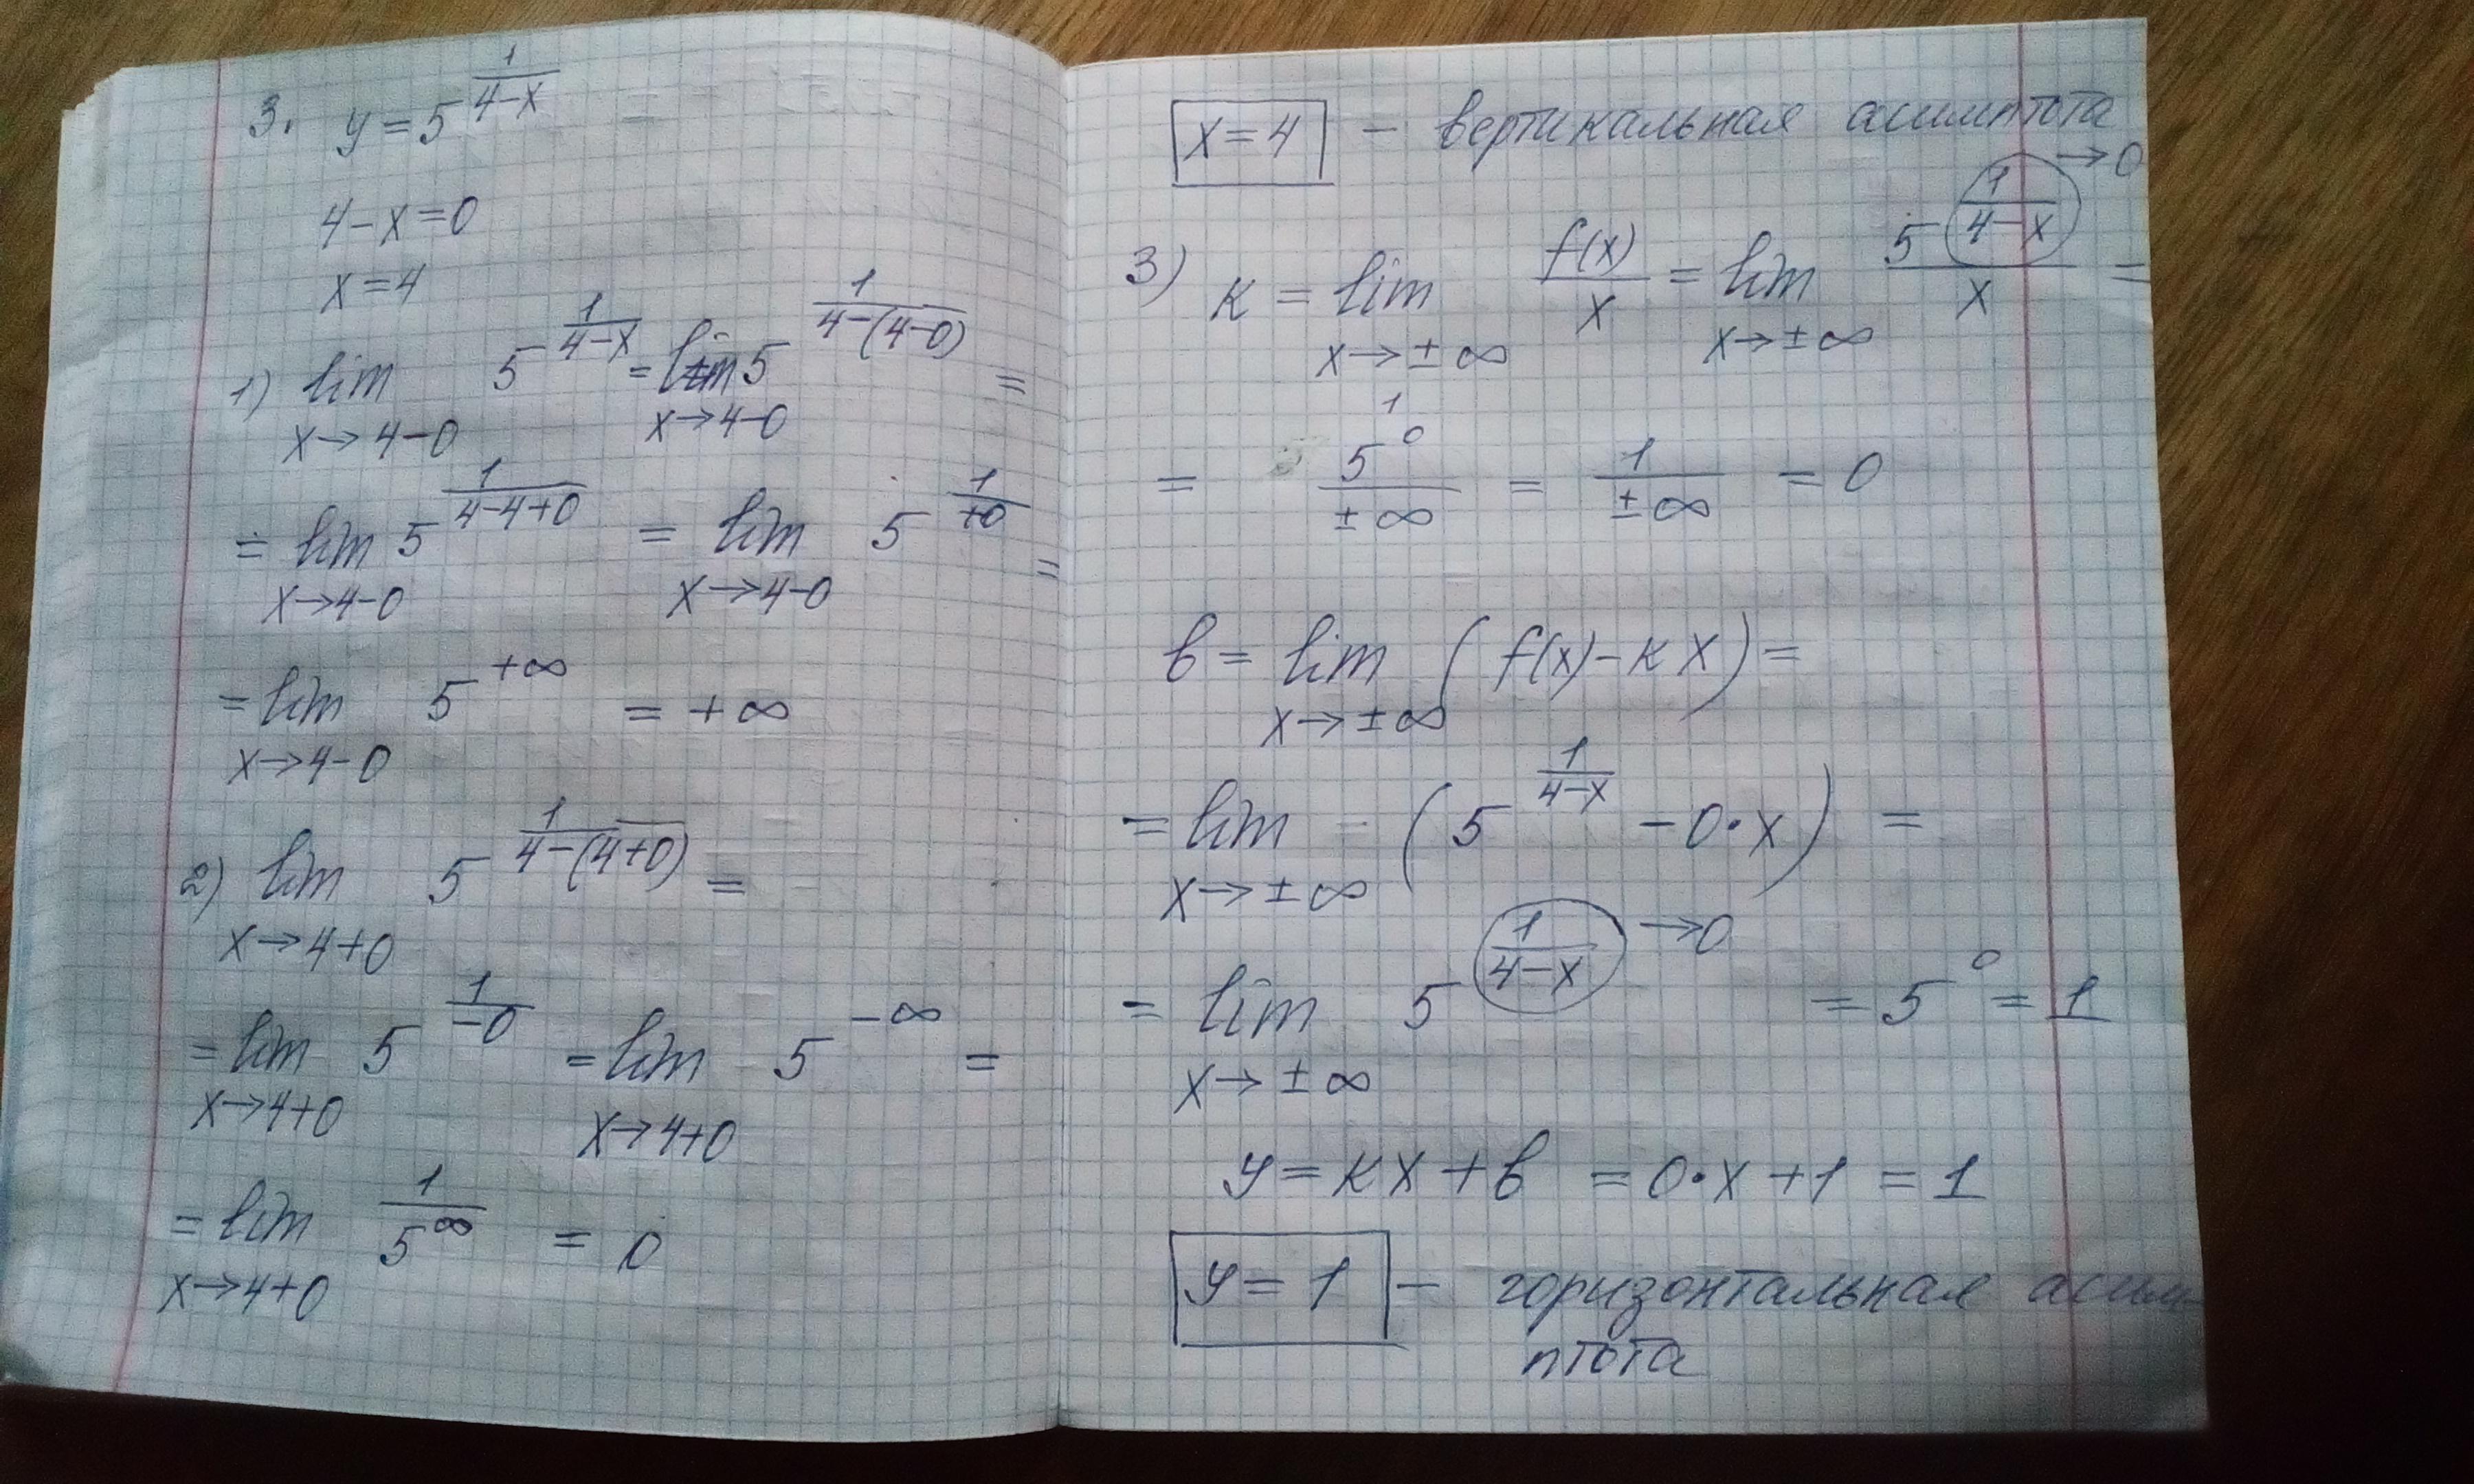 3. y = 5^(1/(4-x))
4-x=0
x=4
1) lim x→4-0 5^(1/(4-x)) = lim x→4-0 5^(1/(4-(4-0))) =
= lim x→4-0 5^(1/(4-4+0)) = lim x→4-0 5^(1/+0) =
= lim x→4-0 5^(+∞) = +∞
2) lim x→4+0 5^(1/(4-(4+0))) =
= lim x→4+0 5^(1/-0) = lim x→4+0 5^(-∞) =
= lim x→4+0 1/5^∞ = 0
x=4 – вертикальная асимптота
3) к = lim x→±∞ f(x)/x = lim x→±∞ 5^(1/(4-x)) →0 / x =
= 5^0 1 / ±∞ = 1/±∞ = 0
в = lim x→±∞ (f(x)-кx) =
= lim x→±∞ (5^(1/(4-x)) - 0·x) =
= lim x→±∞ 5^(1/(4-x)) →0 = 5^0 = 1
y = кx + в = 0·x + 1 = 1
y = 1 – горизонтальная асим-
птота